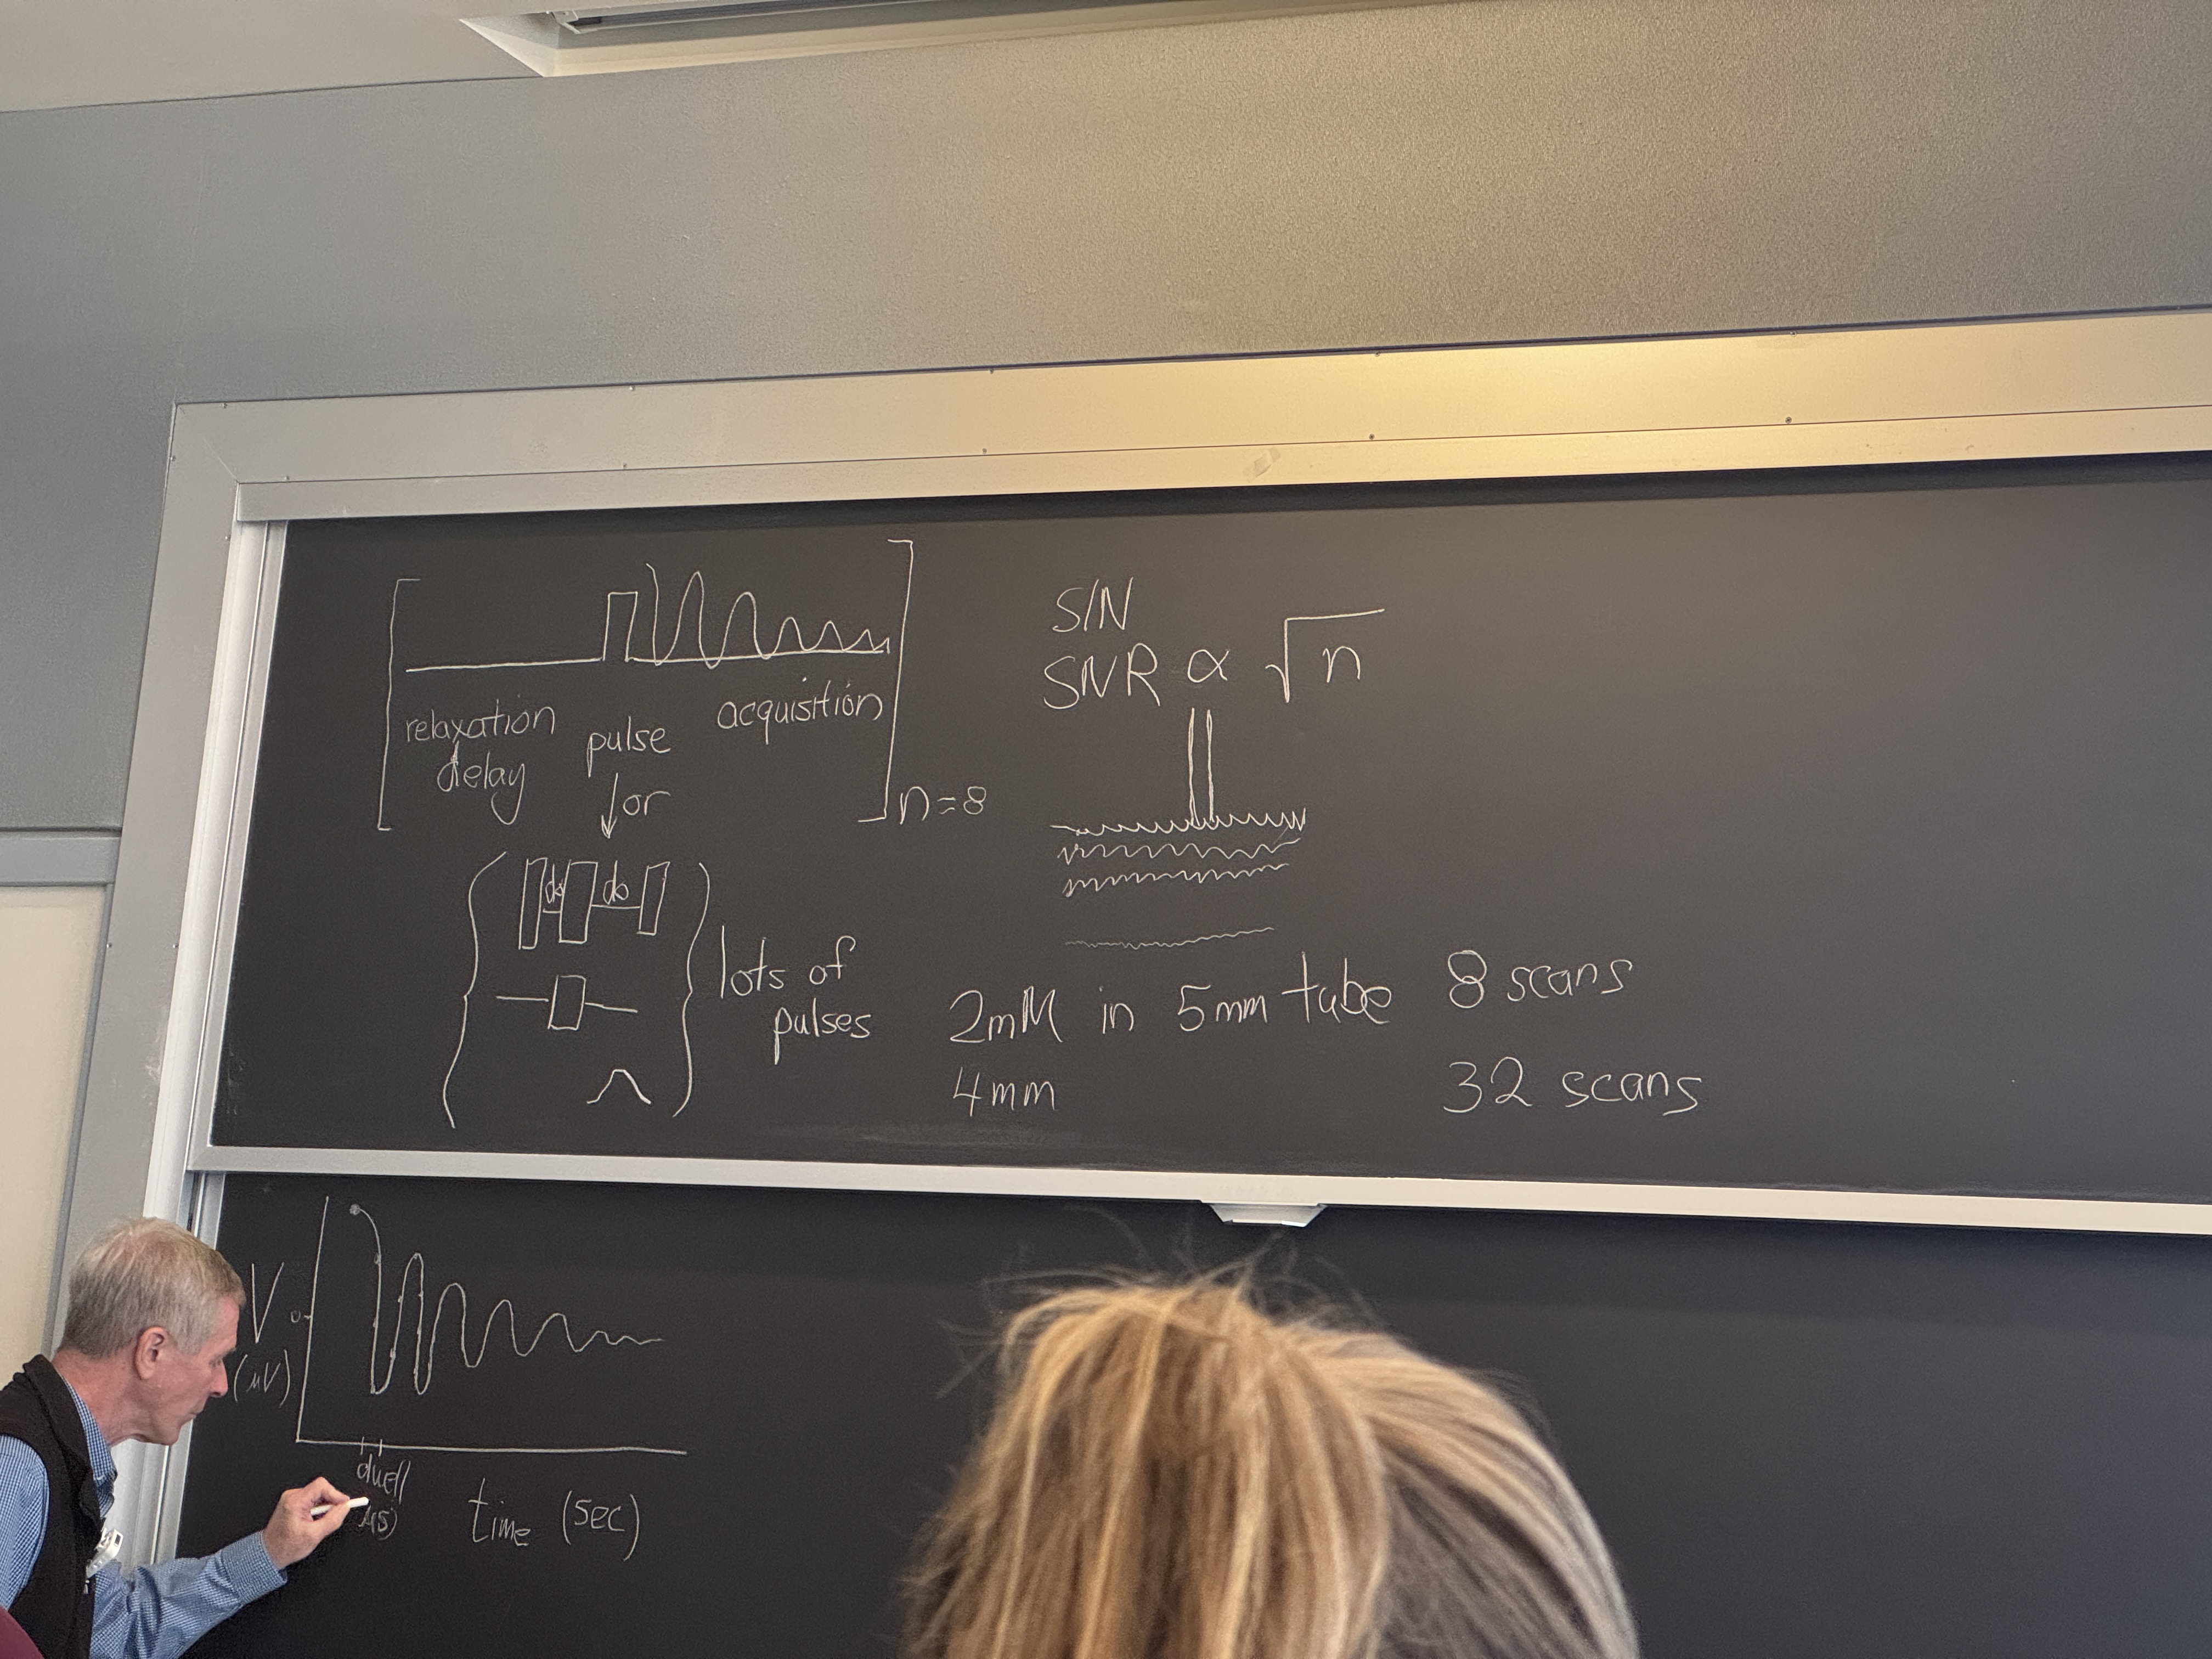 relaxation
delay
pulse
acquisition
↓ or
n=8
do do
lots of
pulses
S/N
SNR ∝ √n
2mM in 5mm tube 8 scans
4mm 32 scans
V
0
(μV)
dwell
μs)
time (sec)